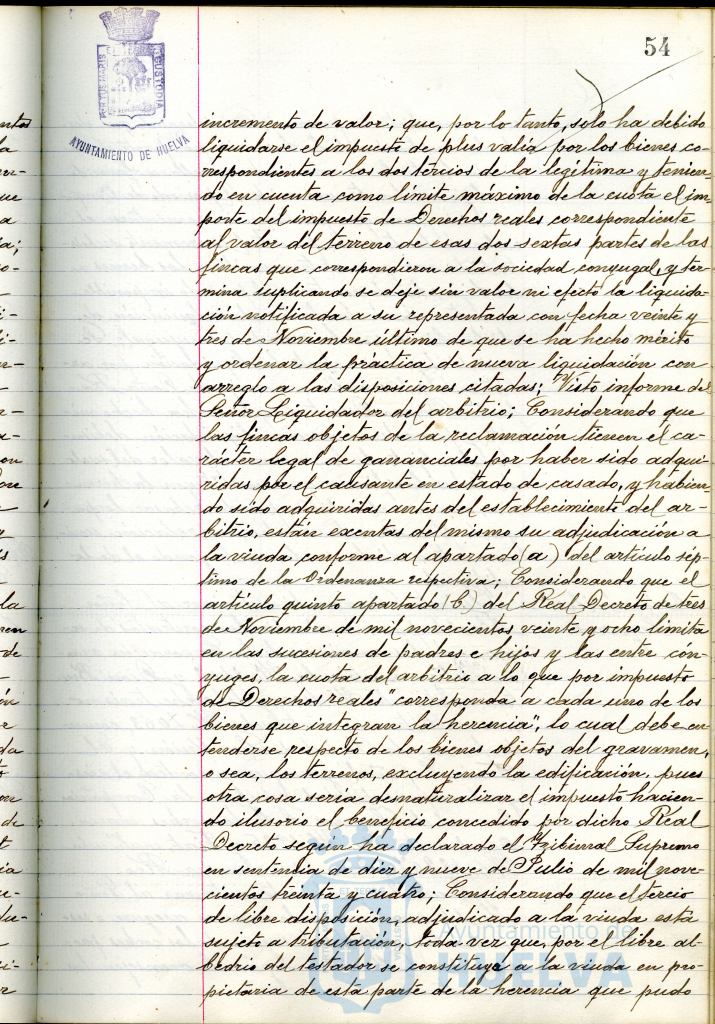 54
PORTUS MARIS ET TERRE CUSTODIA
AYUNTAMIENTO DE HUELVA
incremento de valor; que, por lo tanto, solo ha debido
liquidarse el impuesto de plus valía por los bienes co-
rrespondientes a los dos tercios de la legítima y tenien-
do en cuenta como límite máximo de la cuota el im-
porte del impuesto de Derechos reales correspondiente
al valor del terreno de esas dos sextas partes de las
fincas que correspondieron a la sociedad conyugal, y ter-
mina suplicando se deje sin valor ni efecto la liquida-
ción notificada a su representada con fecha veinte y
tres de Noviembre último de que se ha hecho mérito
y ordenar la práctica de nueva liquidación con
arreglo a las disposiciones citadas; Visto informe del
Señor Liquidador del arbitrio; Considerando que
las fincas objetos de la reclamación tienen el ca-
rácter legal de gananciales por haber sido adqui-
ridas por el causante en estado de casado, y habien-
do sido adquiridas antes del establecimiento del ar-
bitrio, están exentas del mismo su adjudicación a
la viuda conforme al apartado (a) del artículo sép-
timo de la Ordenanza respectiva; Considerando que el
artículo quinto apartado (C.) del Real Decreto de tres
de Noviembre de mil novecientos veinte y ocho limita
en las sucesiones de padres e hijos y las entre cón-
yuges, la cuota del arbitrio a lo que por impuesto
de Derechos reales "corresponda a cada uno de los
bienes que integran la herencia", lo cual debe en-
tenderse respecto de los bienes objetos del gravamen,
o sea, los terrenos, excluyendo la edificación, pues
otra cosa sería desnaturalizar el impuesto hacien-
do ilusorio el beneficio concedido por dicho Real
Decreto según ha declarado el Tribunal Supremo
en sentencia de diez y nueve de Julio de mil nove-
cientos treinta y cuatro; Considerando que el tercio
de libre disposición, adjudicado a la viuda está
sujeto a tributación, toda vez que, por el libre al-
bedrio del testador se constituye a la viuda en pro-
pietaria de esta parte de la herencia que pudo
Ayuntamiento de
HUELVA